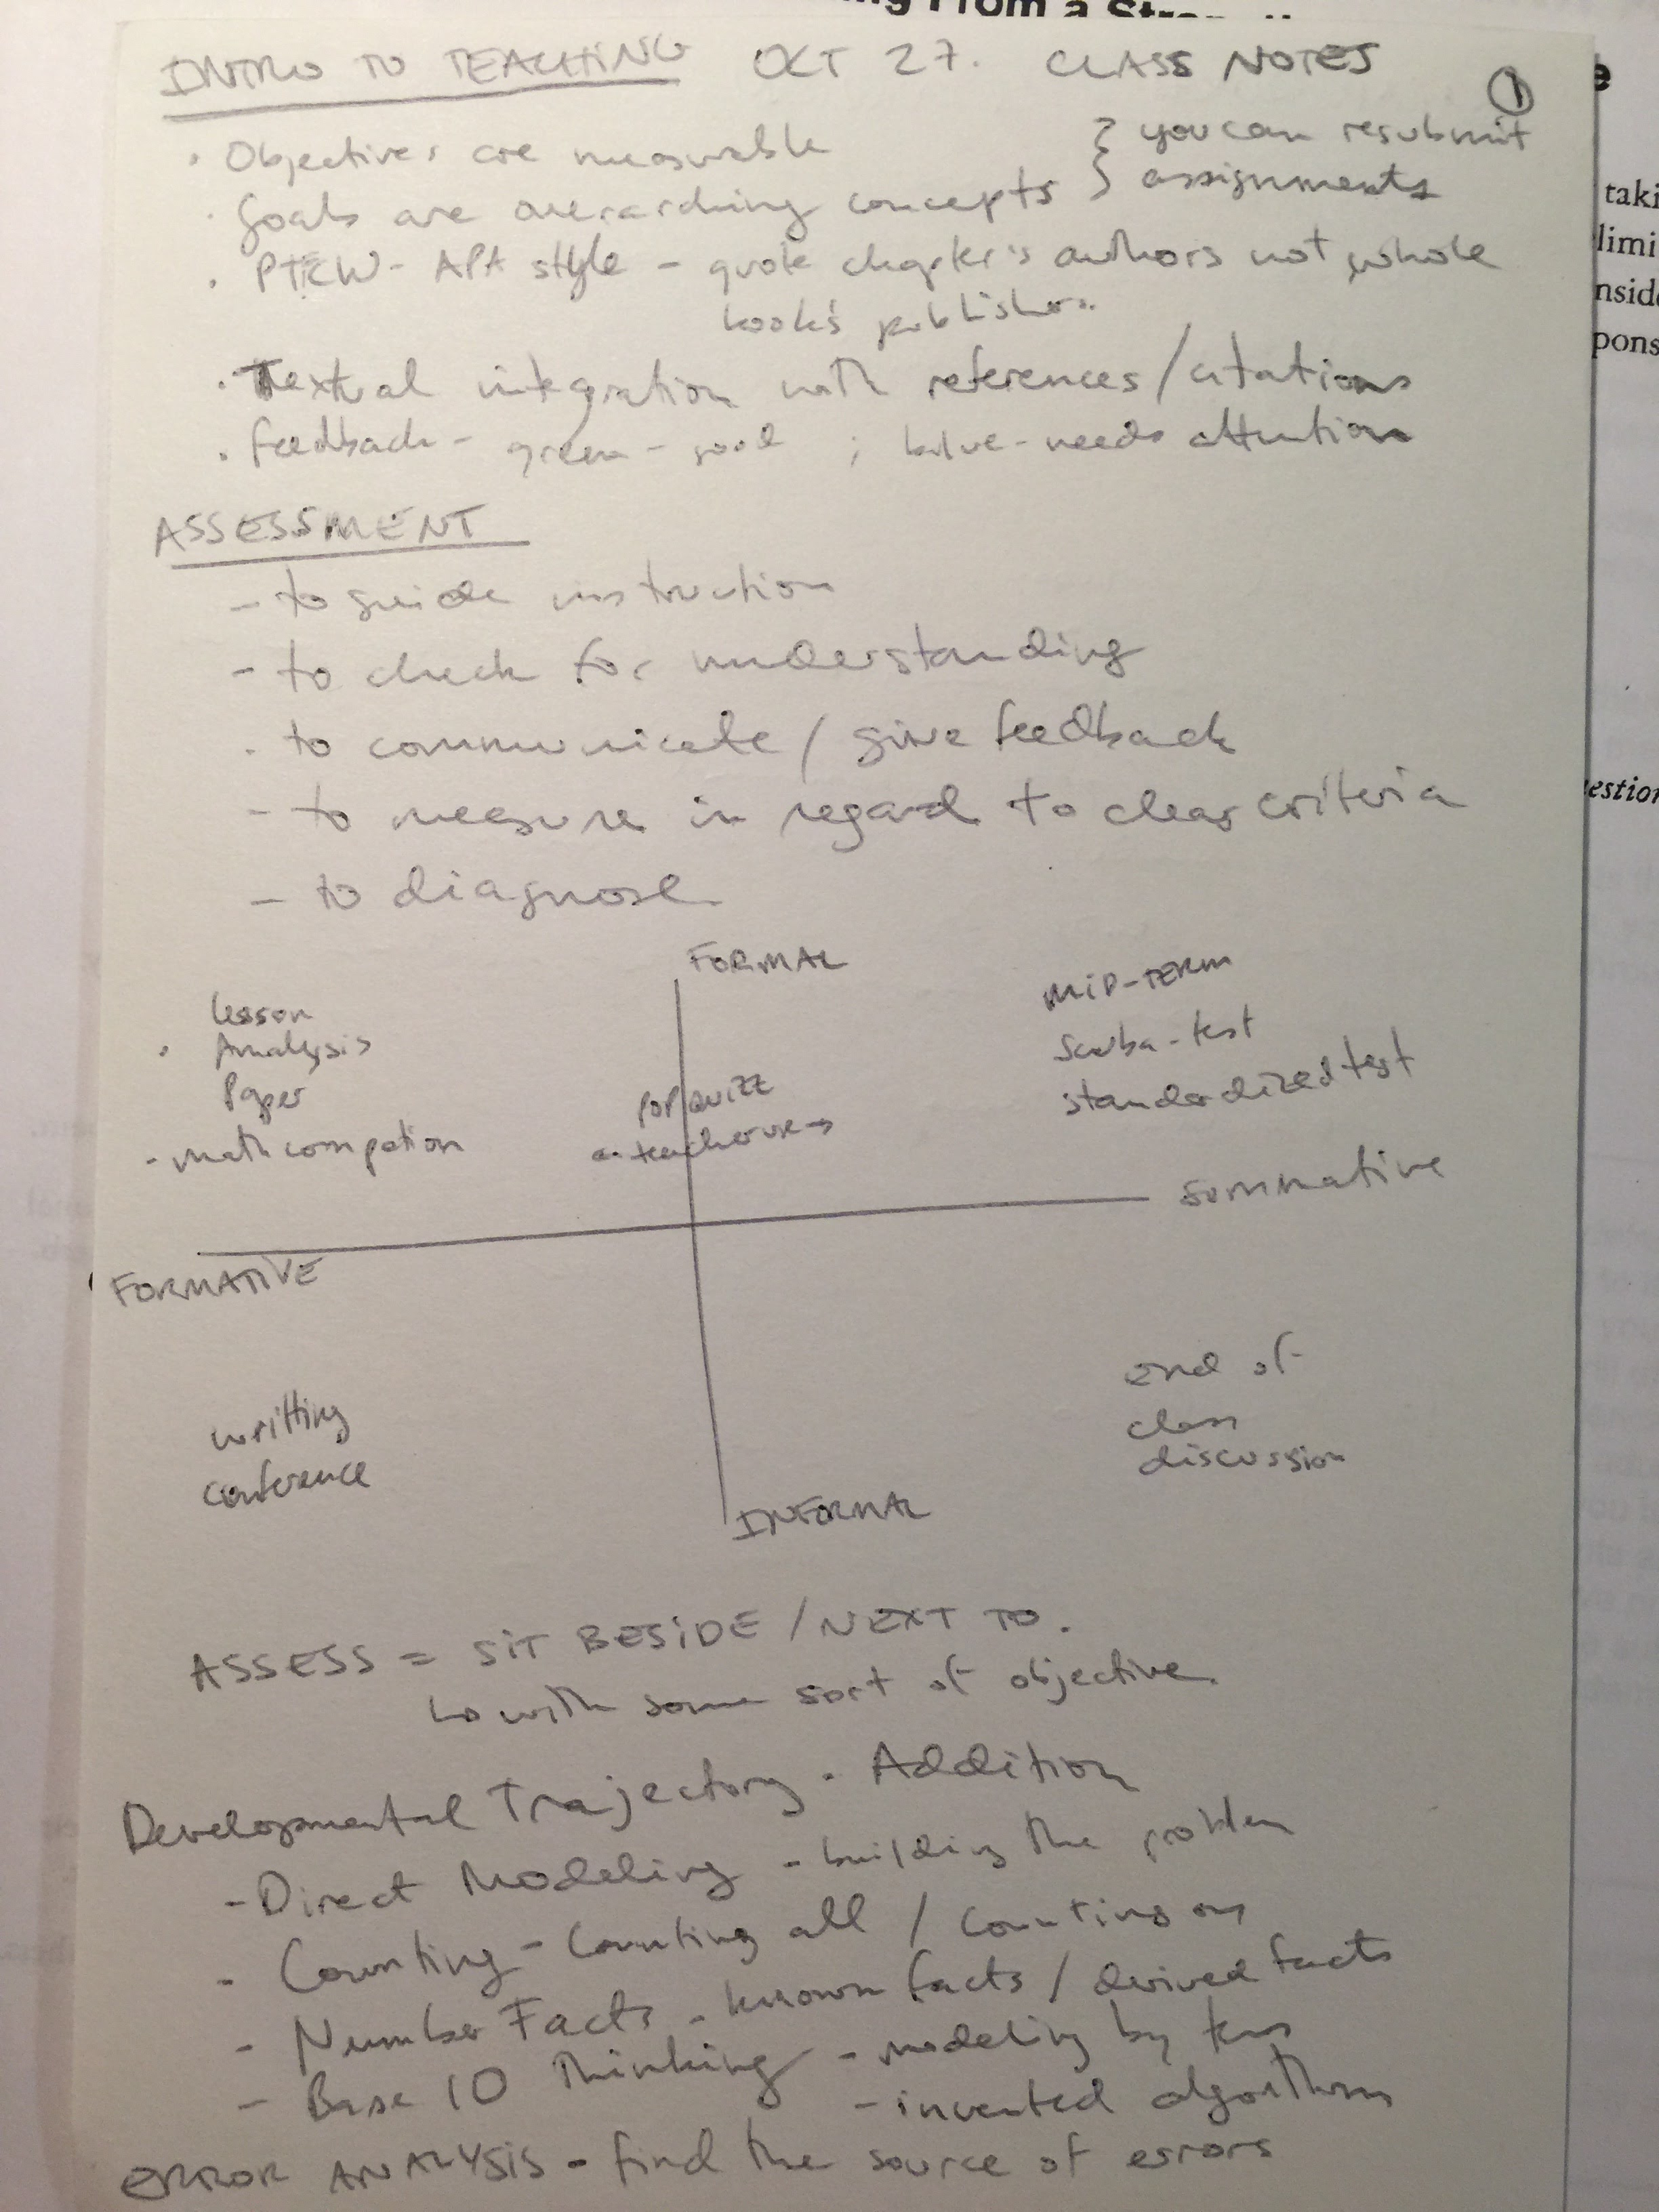 ng From a Stren
INTRO TO TEACHING OCT 27. CLASS NOTES
1
· Objectives are measurable
· Goals are overarching concepts
} you can resubmit
assignments
· APA style - quote chapter's authors not whole
book's publishers.
· Textual integration with references/citations
· feedback - green - good ; blue - needs attention
ASSESSMENT
- to guide instruction
- to check for understanding
- to communicate / give feedback
- to measure in regard to clear criteria
- to diagnose
FORMAL
lesson
· Analysis
Paper
- math compation
POP QUIZZ
teacher use →
MID-TERM
scuba-test
standardized test
summative
FORMATIVE
writting
conference
end of
class
discussion
INFORMAL
ASSESS = SIT BESIDE / NEXT TO.
↳ with some sort of objective
Developmental Trajectory - Addition
- Direct Modeling - building the problem
- Counting - Counting all / Counting on
- Number Facts - known facts / derived facts
- Base 10 Thinking - modeling by tens
- invented algorithms
ERROR ANALYSIS - find the source of errors
e
taki
limi
nside
pons
estion